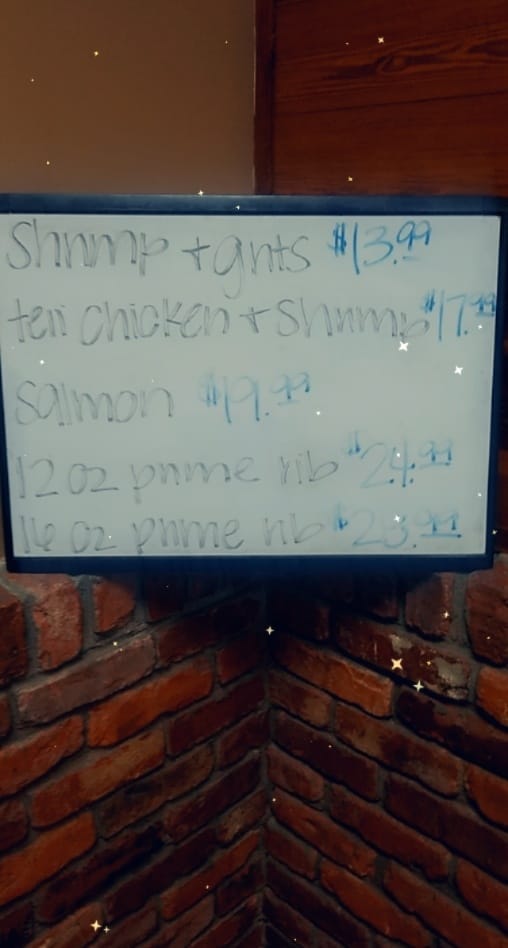 Shrimp + grits $13.99
teri chicken + Shrimp $17.99
Salmon $19.99
12 oz prime rib $24.99
16 oz prime rib $28.99